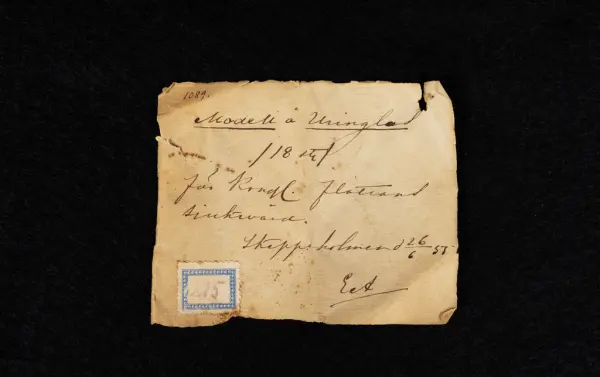 1089.
Modell å Uringlas
/18 st/
för Kongl. flottans
sjukvård.
Skeppsholmen d 26/6 55
EA
15